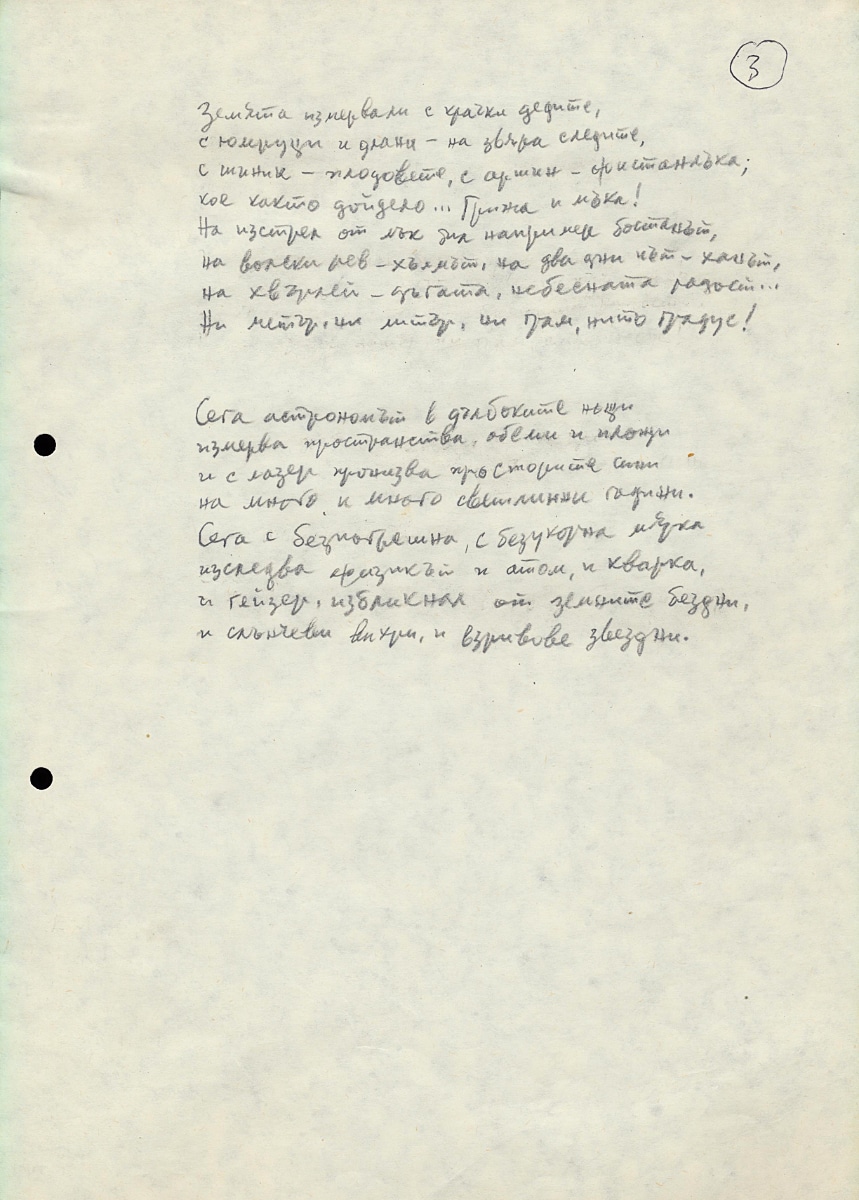 3
Земята измервали с крачки дедите,
с юмруци и длани – на звяра следите,
с шиник – плодовете, с аршин – фустанлъка;
кое както дойдело... Грижа и мъка!
На изстрел от лък бил например бостанът,
на волски рев – хълмът, на два дни път – ханът,
на хвърлей – дъгата, небесната радост...
Ни метър, ни литър, ни грам, нито градус!
Сега астрономът в дълбоките нощи
измерва пространства, обеми и площи
и с лазер пронизва просторите сини
на много и много светлинни години.
Сега с безпогрешна, с безукорна мярка
изследва физикът и атом, и кварка,
и гейзер, избликнал от земните бездни,
и слънчеви вихри, и взривове звездни.